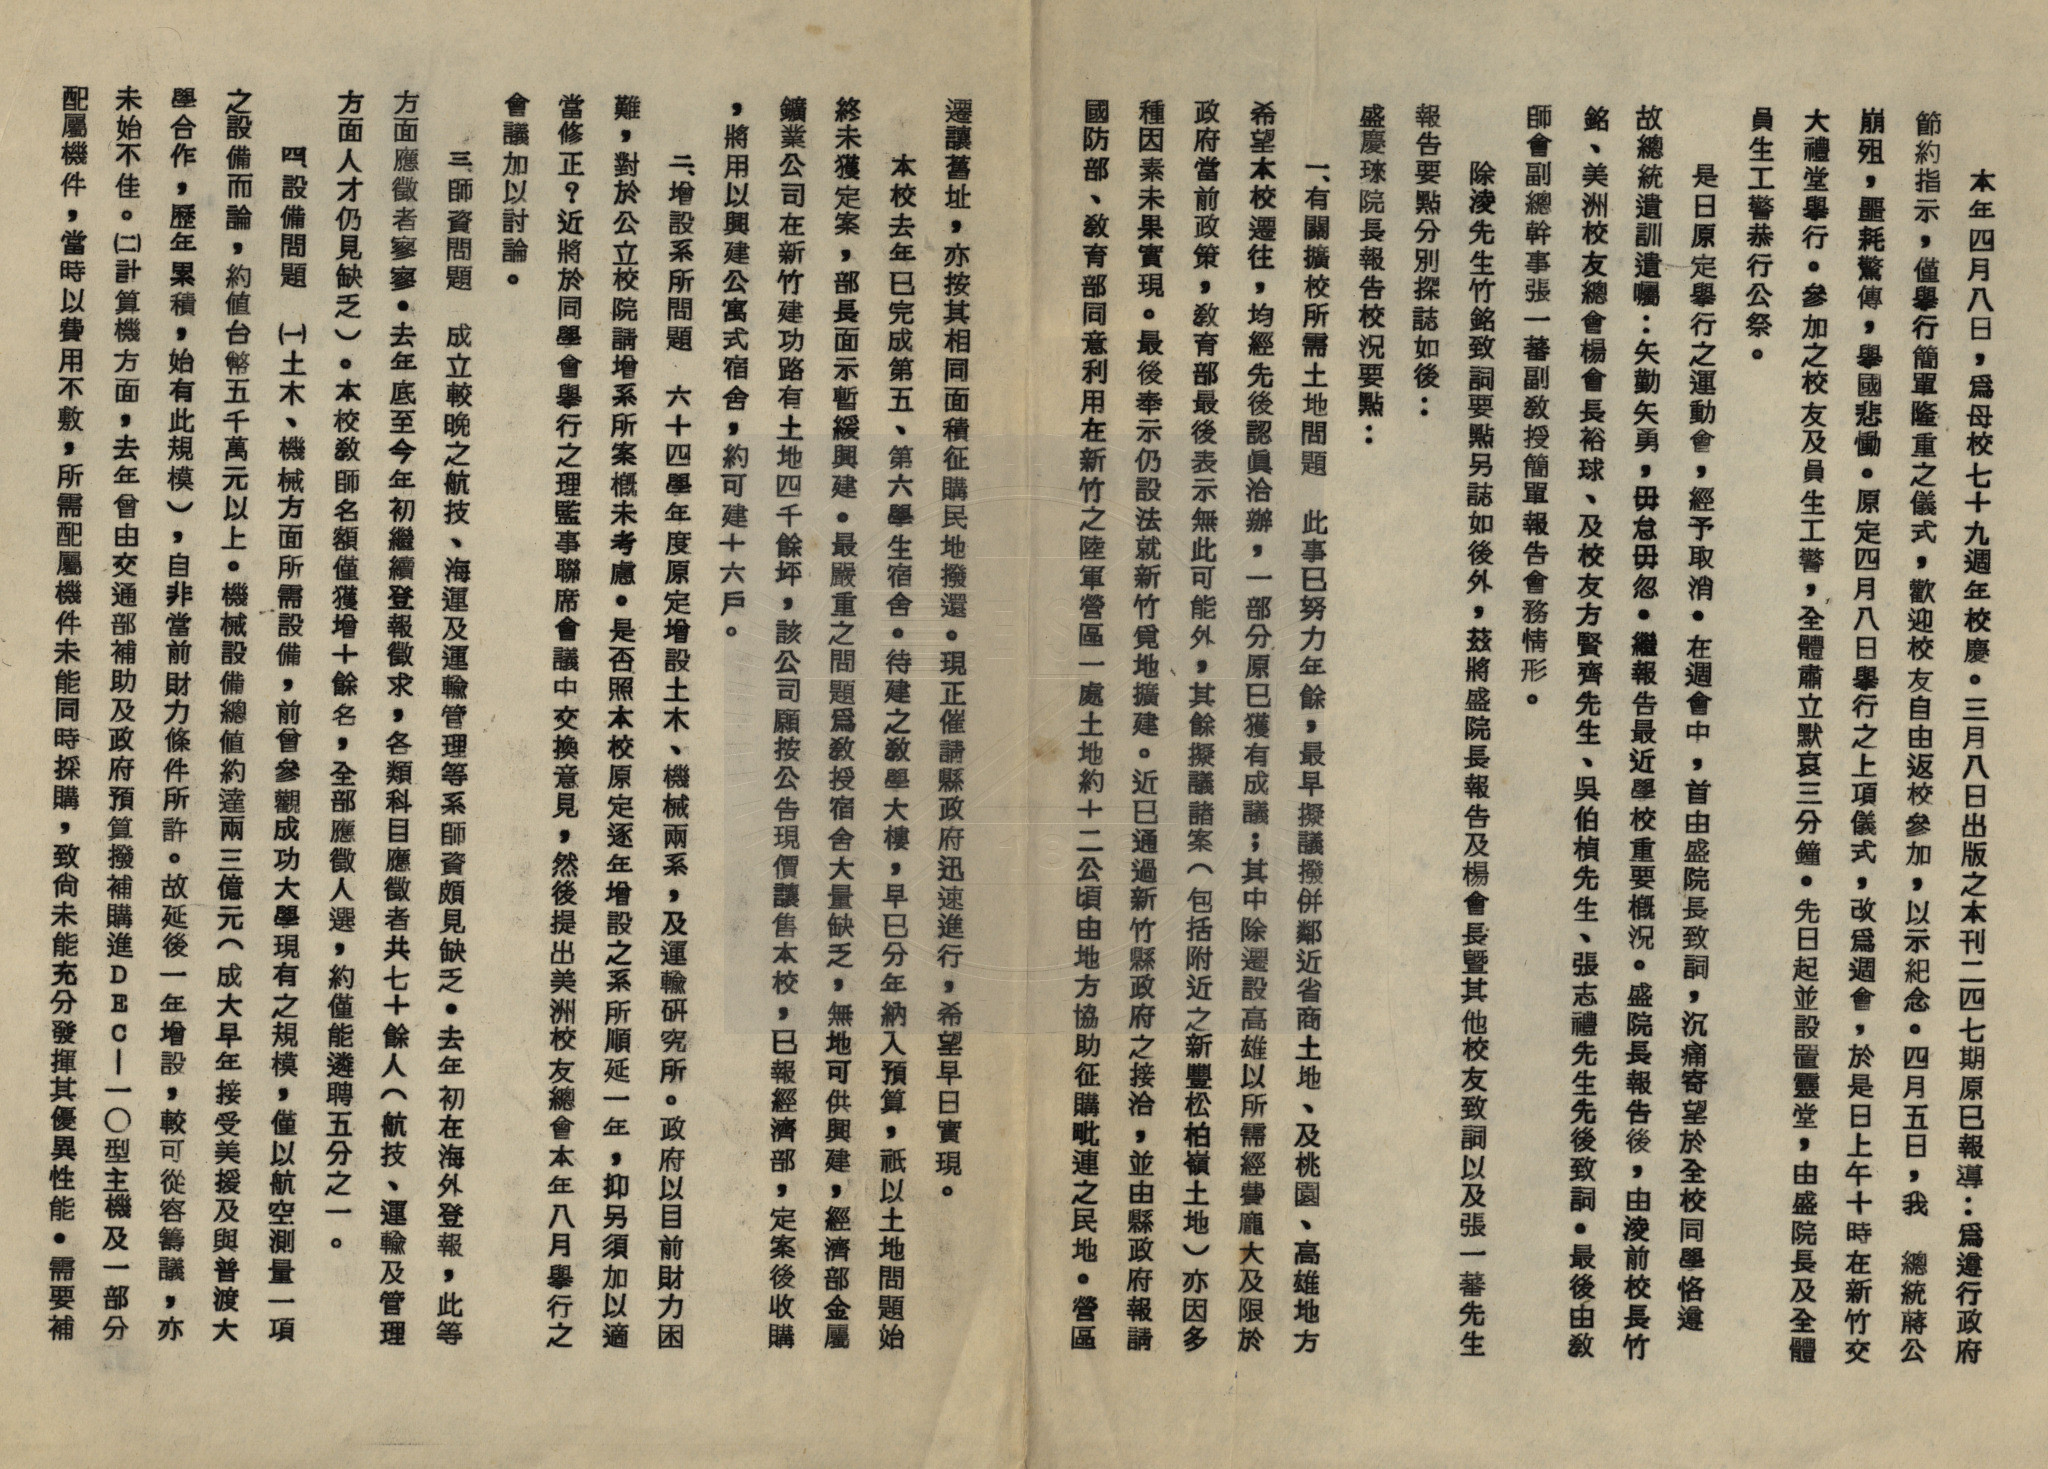 本年四月八日，為母校七十九週年校慶。三月八日出版之本刊二四七期原已報導：為遵行政府
節約指示，僅舉行簡單隆重之儀式，歡迎校友自由返校參加，以示紀念。四月五日，我　總統蔣公
崩殂，噩耗驚傳，舉國悲慟。原定四月八日舉行之上項儀式，改為週會，於是日上午十時在新竹交
大禮堂舉行。參加之校友及員生工警，全體肅立默哀三分鐘。先日起並設置靈堂，由盛院長及全體
員生工警恭行公祭。
是日原定舉行之運動會，經予取消。在週會中，首由盛院長致詞，沉痛寄望於全校同學恪遵
故總統遺訓遺囑：矢勤矢勇，毋怠毋忽。繼報告最近學校重要概況。盛院長報告後，由淩前校長竹
銘、美洲校友總會楊會長裕球、及校友方賢齊先生、吳伯楨先生、張志禮先生先後致詞。最後由教
師會副總幹事張一蕃副教授簡單報告會務情形。
除淩先生竹銘致詞要點另誌如後外，茲將盛院長報告及楊會長暨其他校友致詞以及張一蕃先生
報告要點分別探誌如後：
盛慶琜院長報告校況要點：
一、有關擴校所需土地問題　此事已努力年餘，最早擬議撥併鄰近省商土地、及桃園、高雄地方
希望本校遷往，均經先後認眞洽辦，一部分原已獲有成議；其中除遷設高雄以所需經費龐大及限於
政府當前政策，教育部最後表示無此可能外，其餘擬議諸案（包括附近之新豐松柏嶺土地）亦因多
種因素未果實現。最後奉示仍設法就新竹覓地擴建。近已通過新竹縣政府之接洽，並由縣政府報請
國防部、教育部同意利用在新竹之陸軍營區一處土地約十二公頃由地方協助征購毗連之民地。營區
遷讓舊址，亦按其相同面積征購民地撥還。現正催請縣政府迅速進行，希望早日實現。
本校去年已完成第五、第六學生宿舍。待建之教學大樓，早已分年納入預算，祇以土地問題始
終未獲定案，部長面示暫緩興建。最嚴重之問題為教授宿舍大量缺乏，無地可供興建，經濟部金屬
鑛業公司在新竹建功路有土地四千餘坪，該公司願按公告現價讓售本校，已報經濟部，定案後收購
，將用以興建公寓式宿舍，約可建十六戶。
二、增設系所問題　六十四學年度原定增設土木、機械兩系，及運輸研究所。政府以目前財力困
難，對於公立校院請增系所案概未考慮。是否照本校原定逐年增設之系所順延一年，抑另須加以適
當修正？近將於同學會舉行之理監事聯席會議中交換意見，然後提出美洲校友總會本年八月舉行之
會議加以討論。
三、師資問題　成立較晚之航技、海運及運輸管理等系師資頗見缺乏。去年初在海外登報，此等
方面應徵者寥寥。去年底至今年初繼續登報徵求，各類科目應徵者共七十餘人（航技、運輸及管理
方面人才仍見缺乏）。本校教師名額僅獲增十餘名，全部應徵人選，約僅能遴聘五分之一。
四、設備問題　㈠土木、機械方面所需設備，前曾參觀成功大學現有之規模，僅以航空測量一項
之設備而論，約值台幣五千萬元以上。機械設備總值約達兩三億元（成大早年接受美援及與普渡大
學合作，歷年累積，始有此規模），自非當前財力條件所許。故延後一年增設，較可從容籌議，亦
未始不佳。㈡計算機方面，去年曾由交通部補助及政府預算撥補購進ＤＥＣ—一〇型主機及一部分
配屬機件，當時以費用不敷，所需配屬機件未能同時採購，致尚未能充分發揮其優異性能。需要補